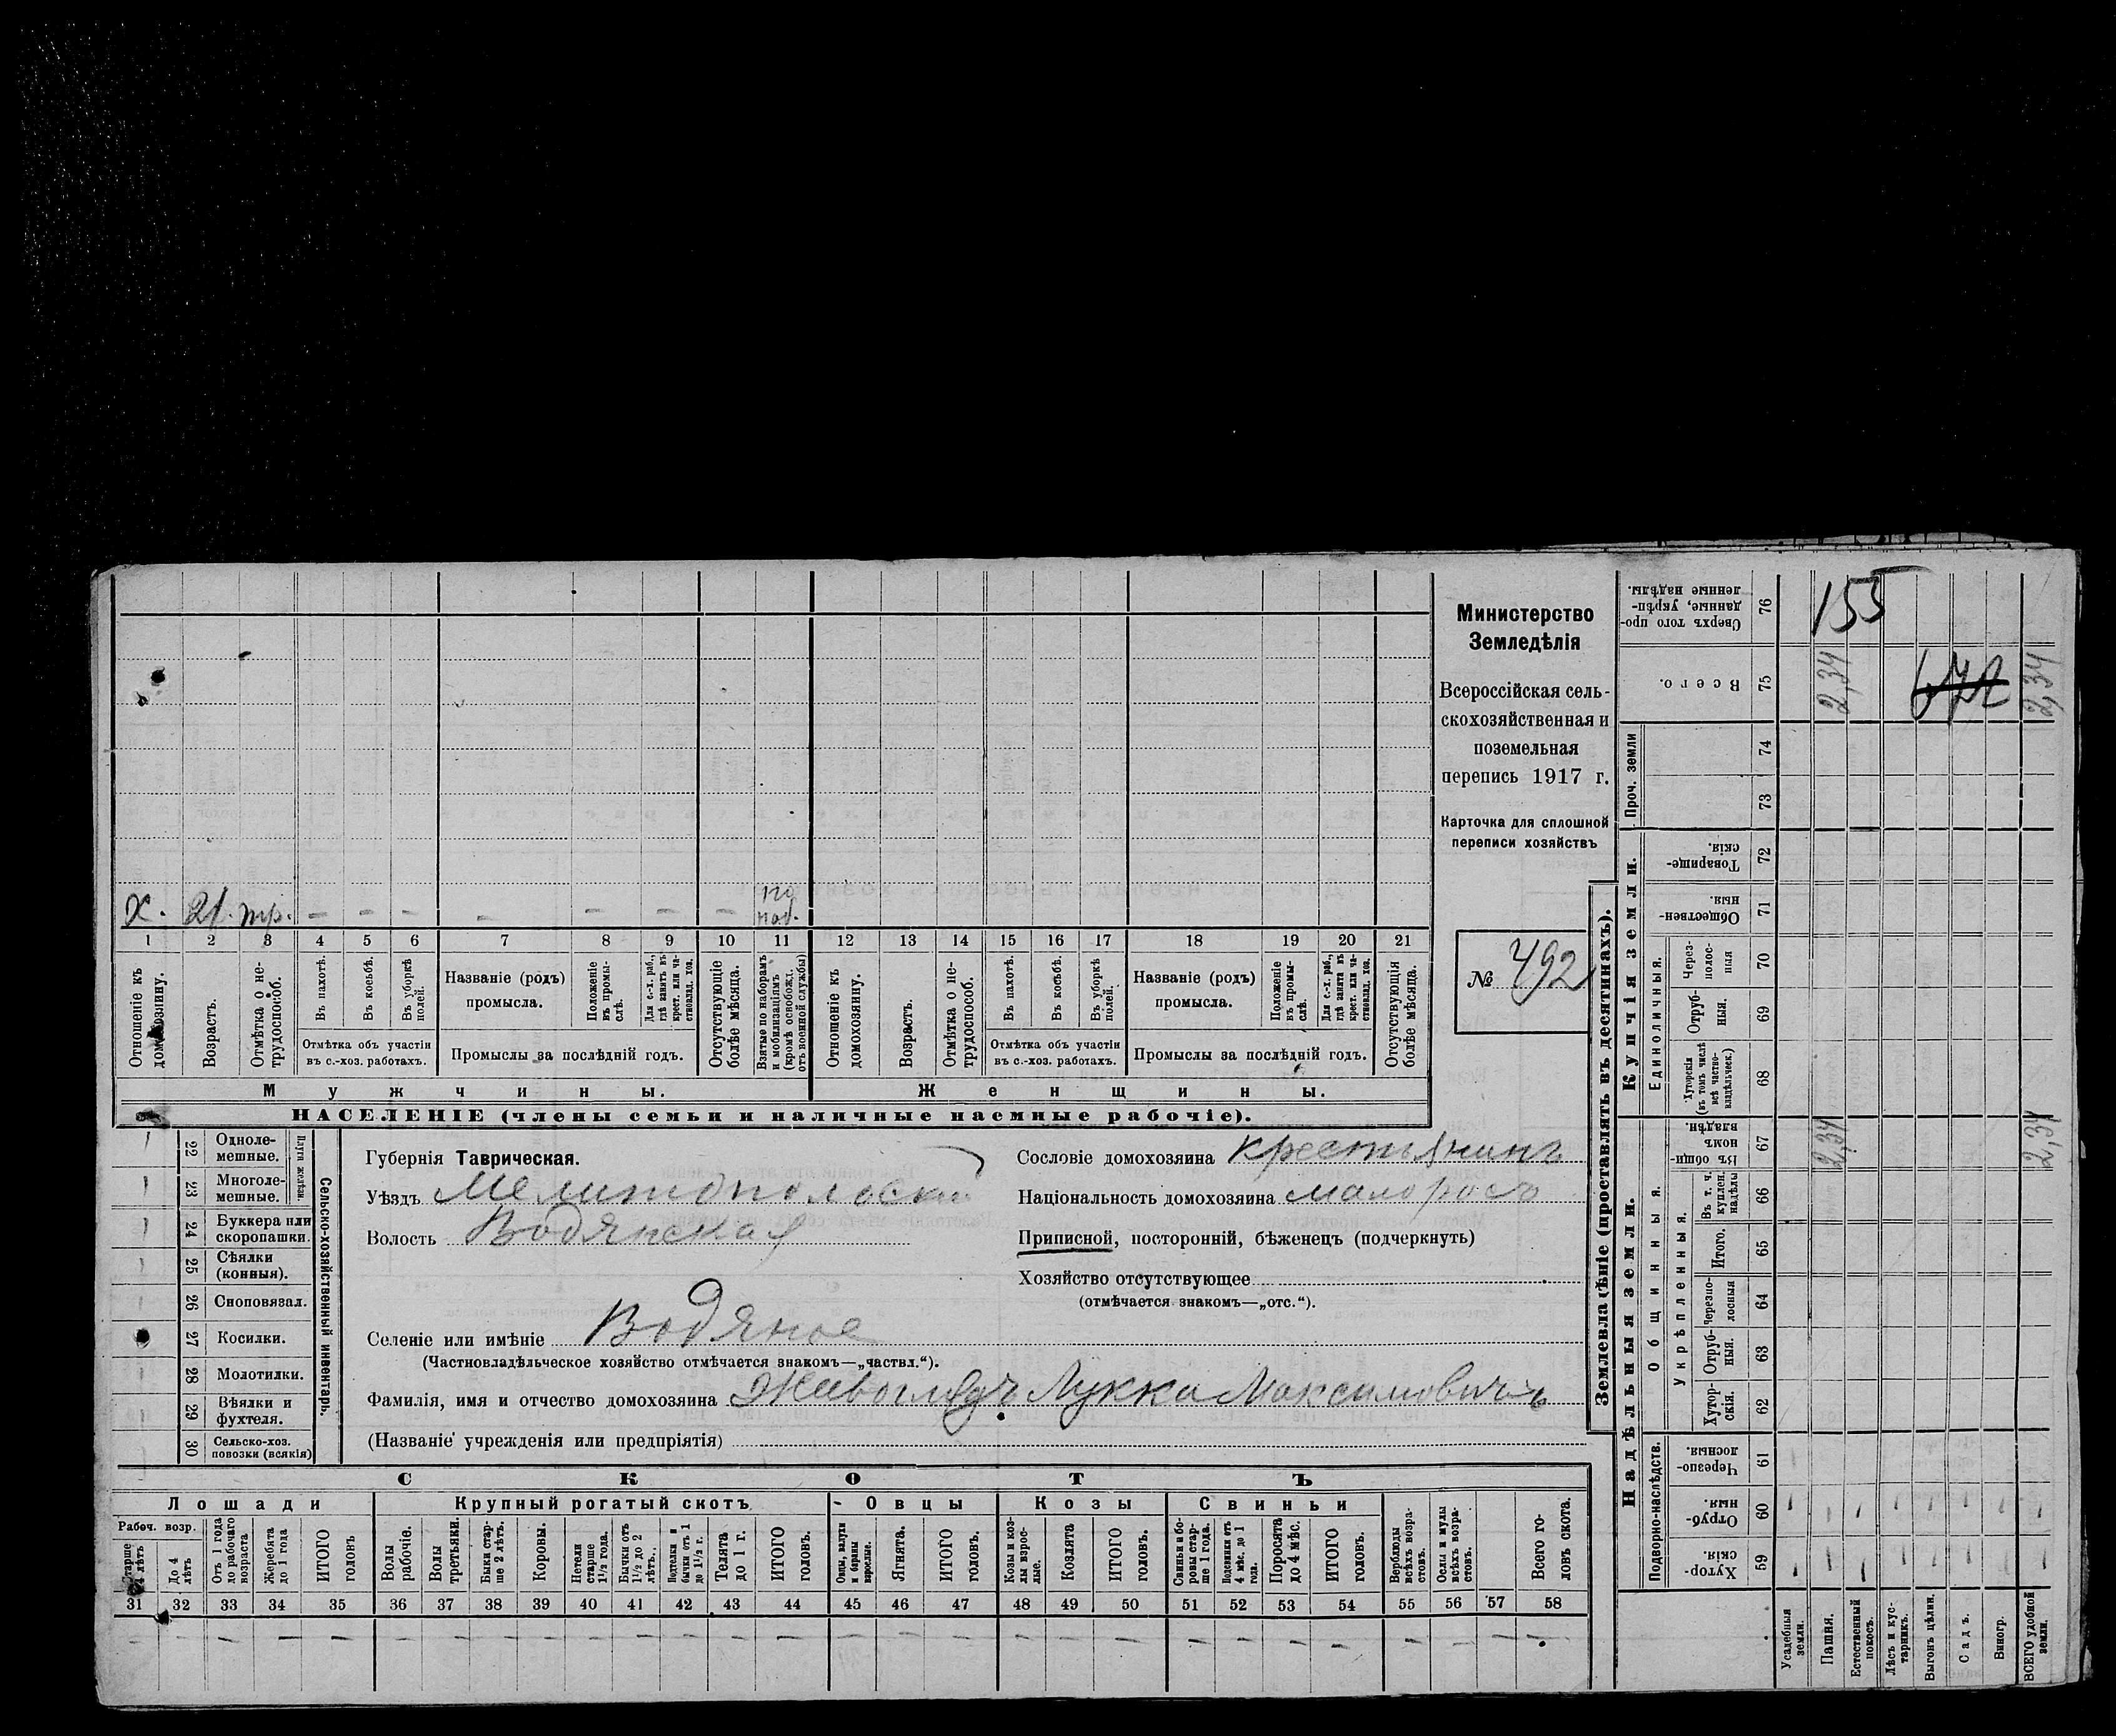 Министерство
Земледѣлія
Всероссійская сель-
скохозяйственная и
поземельная
перепись 1917 г.
Карточка для сплошной
переписи хозяйствъ
№ 492
х. 21. тр. – – – – – – – по наб.
1 2 3 4 5 6 7 8 9 10 11 12 13 14 15 16 17 18 19 20 21
Отношеніе къ домохозяину.
Возрастъ.
Отмѣтка о не-трудоспособ.
Въ пахотѣ.
Въ косьбѣ.
Въ уборкѣ полей.
Отмѣтка объ участіи въ с.-хоз. работахъ.
Названіе (родъ) промысла.
Положеніе въ промы-слѣ.
Для с.-х. раб., гдѣ занятъ въ крест. или ча-стновлад. хоз.
Промыслы за послѣдній годъ.
Отсутствующіе болѣе мѣсяца.
Взятые по наборамъ и мобилизаціямъ (кромѣ освобожд. отъ военной службы)
Отношеніе къ домохозяину.
Возрастъ.
Отмѣтка о не-трудоспособ.
Въ пахотѣ.
Въ косьбѣ.
Въ уборкѣ полей.
Отмѣтка объ участіи въ с.-хоз. работахъ.
Названіе (родъ) промысла.
Положеніе въ промы-слѣ.
Для с.-х. раб., гдѣ занятъ въ крест. или ча-стновлад. хоз.
Промыслы за послѣдній годъ.
Отсутствующія болѣе мѣсяца.
Мужчины.
Женщины.
НАСЕЛЕНІЕ (члены семьи и наличные наемные рабочіе).
22 Одноле-мешные.
23 Многоле-мешные.
Плуги желѣзн.
24 Буккера или скоропашки.
25 Сѣялки (конныя).
26 Сноповязал.
27 Косилки.
28 Молотилки.
29 Вѣялки и фухтеля.
30 Сельско-хоз. повозки (всякія)
Сельско-хозяйственный инвентарь.
Губернія Таврическая.
Уѣздъ Мелитопольскій
Волость Водянская
Селеніе или имѣніе Водяное
(Частновладѣльческое хозяйство отмѣчается знакомъ—„частвл.“).
Фамилія, имя и отчество домохозяина Живоглядъ Лукка Максимовичъ
(Названіе учрежденія или предпріятія)
Сословіе домохозяина крестьянинъ
Національность домохозяина малоросъ
Приписной, посторонній, бѣженецъ (подчеркнуть)
Хозяйство отсутствующее
(отмѣчается знакомъ—„отс.“).
СКОТЪ
Лошади
Крупный рогатый скотъ
Овцы
Козы
Свиньи
Рабоч. возр.
До 4 лѣтъ
Отъ 1 года до рабочаго возраста
Жеребята до 1 года
ИТОГО головъ
Волы рабочіе.
Волы третьяки.
Быки стар-ше 2 лѣтъ.
Коровы.
Нетели старше 1½ года.
Бычки отъ 1½ до 2 лѣтъ.
Подтелки и бычки отъ 1 до 1½ г.
Телята до 1 г.
ИТОГО головъ.
Овцы, валухи и бараны взрослые.
Ягнята.
ИТОГО головъ.
Козы и коз-лы взрос-лые.
Козлята
ИТОГО головъ.
Свиньи и бо-ровы стар-ше 1 года.
Подсвинки отъ 4 мѣс. до 1 года.
Поросята до 4 мѣс.
ИТОГО головъ.
Верблюды всѣхъ возра-стовъ.
Ослы и мулы всѣхъ возра-стовъ.
Всего го-ловъ скота.
31 32 33 34 35 36 37 38 39 40 41 42 43 44 45 46 47 48 49 50 51 52 53 54 55 56 57 58
Землевладѣніе (проставлять въ десятинахъ).
Надѣльныя земли.
Купчія земли.
Проч. земли
Подворно-наслѣдств.
Общинныя
Укрѣпленныя.
Единоличныя.
Сверхъ того про-данные, укрѣп-ленные надѣлы. 76 155
Всего. 75 2,34 2,34
74
73
Товарище-скія. 72
Обществен-ныя. 71
Через-полос-ныя 70
Отруб-ныя. 69
Хуторскія (въ томъ числѣ всѣ частно-владѣльческ.) 68
Въ общин-номъ владѣн. 67 2,34 2,34
Въ т. ч. куплен. надѣлы 66
Итого. 65
Черезпо-лосныя 64
Отруб-ныя. 63
Хутор-скія. 62
Черезпо-лосныя. 61
Отруб-ныя. 60
Хутор-скія. 59
Усадебныя земли.
Пашня.
Естественный покосъ.
Лѣсъ и кус-тарникъ.
Выгонъ цѣлин.
Садъ.
Виногр.
ВСЕГО удобной земли.